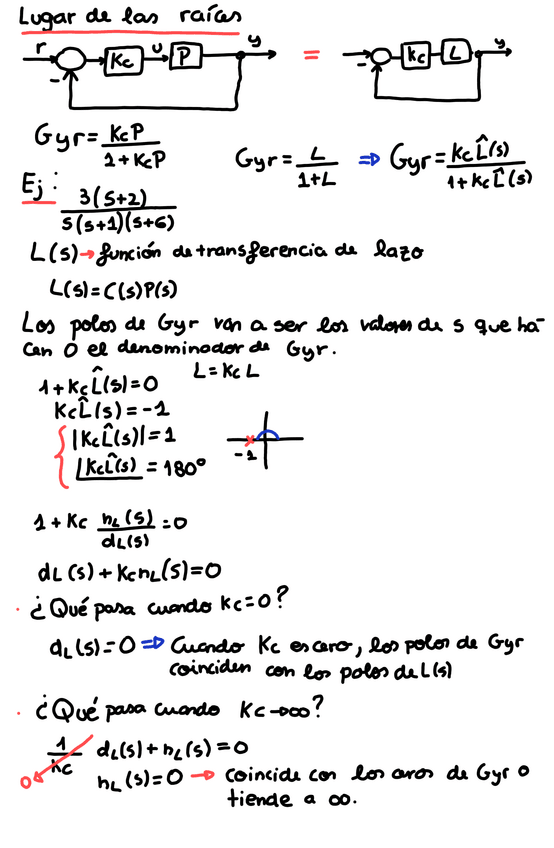 Lugar de las raíces
r - Kc u P y = - Kc L y
Gyr = KcP / 1+KcP   Gyr = L / 1+L ⇒ Gyr = Kc L̂(s) / 1+Kc L̂(s)
Ej: 3(s+2) / s(s+1)(s+6)
L(s) → función de transferencia de lazo
L(s) = C(s)P(s)
Los polos de Gyr van a ser los valores de s que ha-
cen 0 el denominador de Gyr.
1+Kc L̂(s) = 0   L = Kc L
Kc L̂(s) = -1
|Kc L̂(s)| = 1
∠Kc L̂(s) = 180°   -1
1 + Kc nL(s) / dL(s) = 0
dL(s) + Kc nL(s) = 0
· ¿Qué pasa cuando Kc=0?
dL(s) = 0 ⇒ Cuando Kc es cero, los polos de Gyr
coinciden con los polos de L(s)
· ¿Qué pasa cuando Kc→∞?
1 / Kc dL(s) + nL(s) = 0
0   nL(s) = 0 → coincide con los ceros de Gyr o
tiende a ∞.